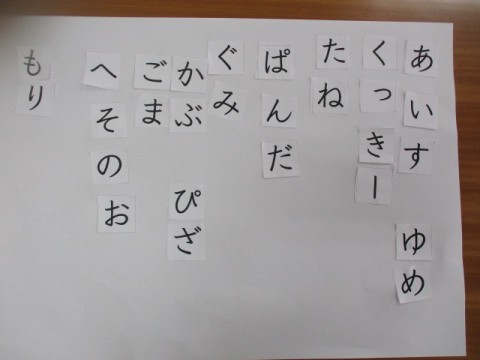 あいす
ゆめ
くっきー
たね
ぱんだ
ぐみ
かぶ
ぴざ
ごま
へそのお
もり